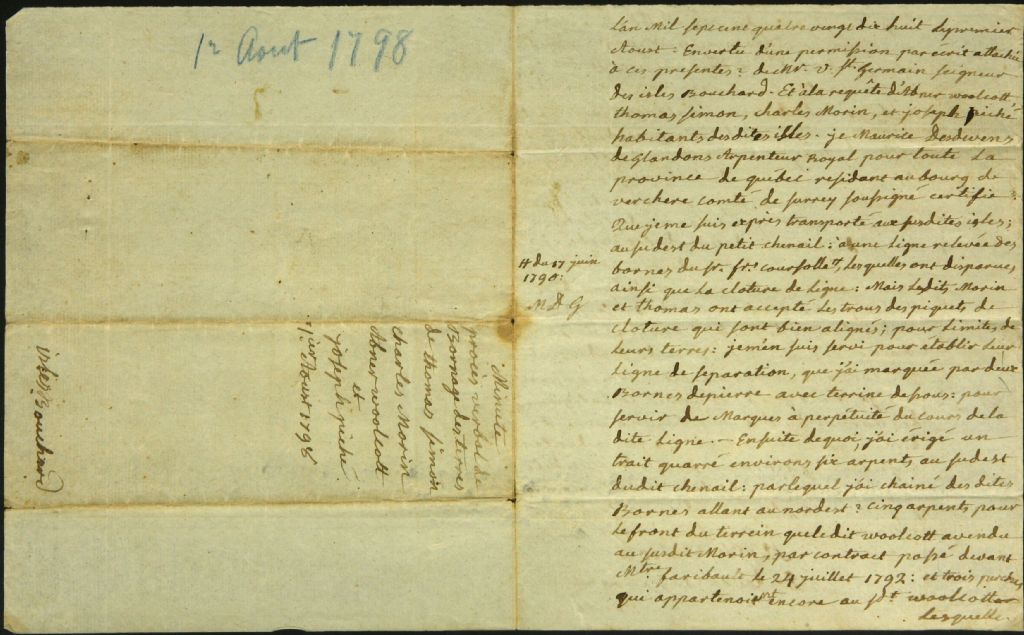 1r Aout 1798
L'an Mil sept cent quatre vingt dix huit le premier
Aoust : En vertu d'une permission par écrit attachée
à ces presentes : de Mr. v. st. Germain seigneur
des isles Bouchard. Et à la requête d'Abner woolcott
thomas simon, charles Morin, et joseph piché
habitants des dites isles. je Maurice Desdevens
de Glandons Arpenteur Royal pour toute la
province de quebec residant au bourg de
verchere comté de surrey soussigné certifie :
Que je me suis exprès transporté aux susdites isles ;
au sudest du petit chenail : à une ligne relevée des
bornes du sr. frs. coursolles #, lesquelles ont disparues
ainsi que la cloture de ligne : Mais lesdits Morin
et thomas ont accepté les trous des piquets de
cloture qui sont bien alignés ; pour limites de
leurs terres : je m'en suis servi pour etablir leur
ligne de separation, que j'ai marquée par deux
Bornes de pierre avec terrine dessous : pour
servir de Marques à perpetuité du cours de la
dite ligne. — Ensuite de quoi, j'ai érigé un
trait quarré environs six arpents au sudest
dudit chenail : par lequel j'ai chainé des dites
Bornes allant au nordest : cinq arpents pour
le front du terrein que le dit woolcott a vendu
au susdit Morin, par contract passé devant
Mtre faribault le 24 juillet 1792 : et trois perches
qui appartenoient encore au sdt. woolcott
lesquelle.
# du 17 juin
1790 :
M D G
Minute
procès verbal de
Bornage des terres
de thomas simon
charles Morin
Abner woolcott
et
joseph piché
1ier Aoust 1798
isles Bouchard